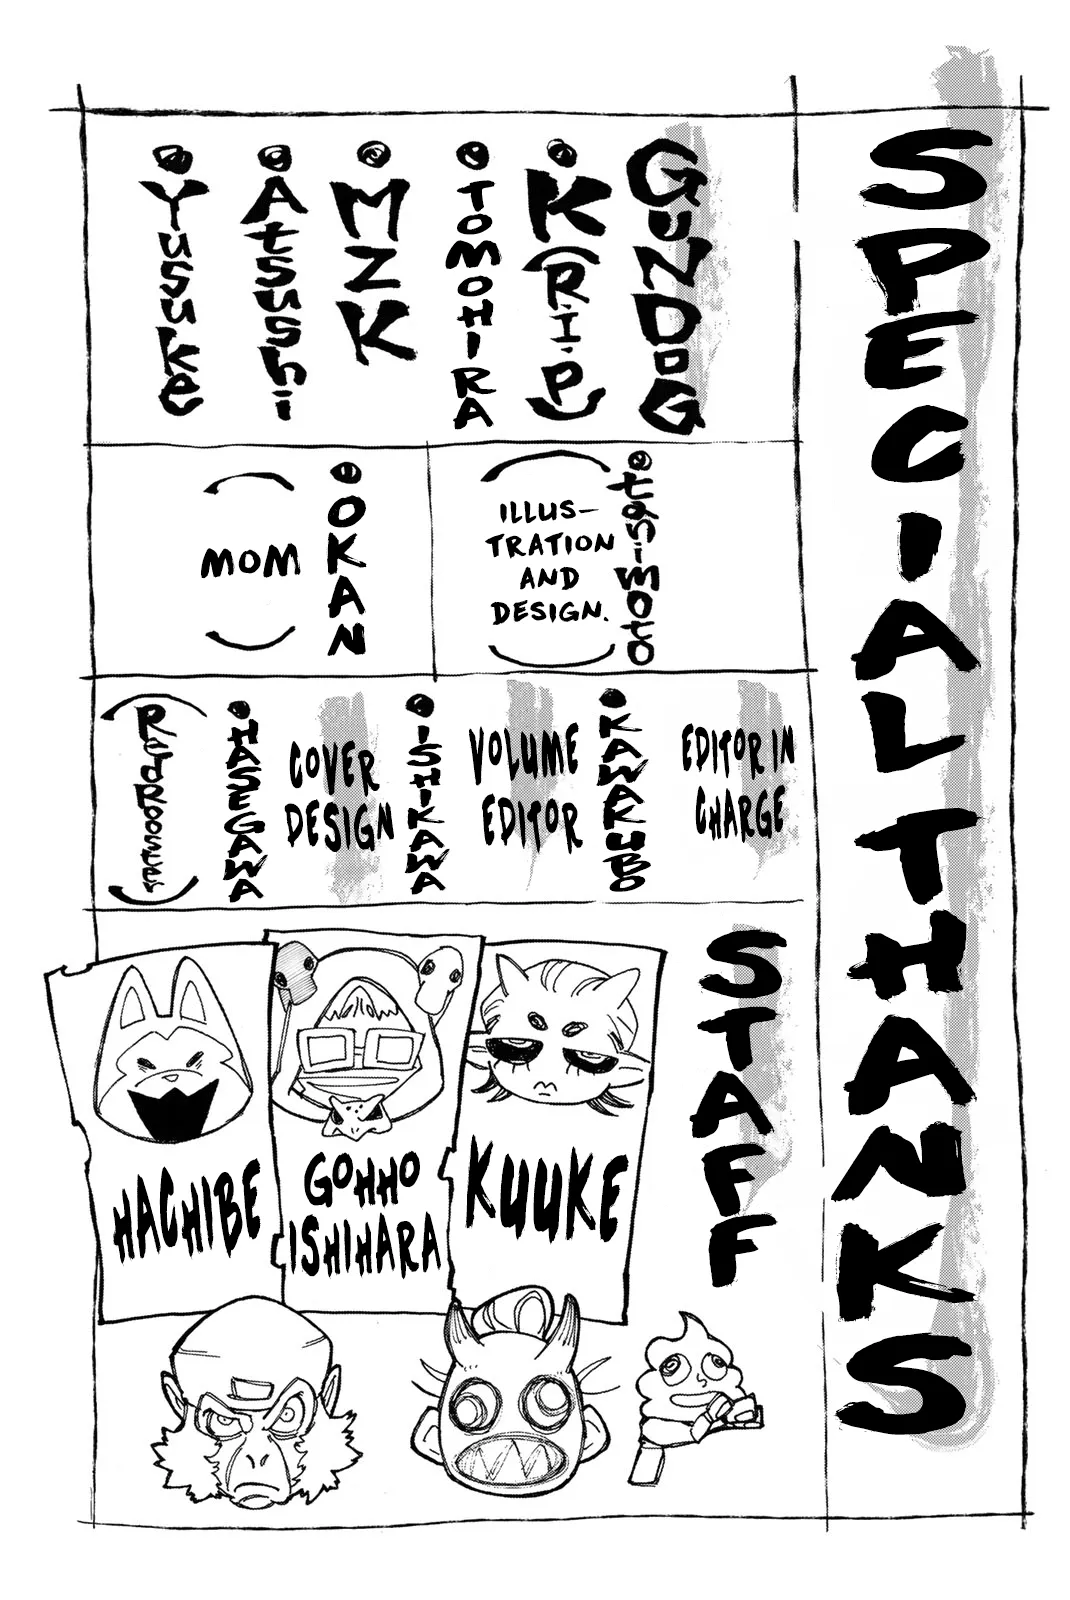 SPECIAL THANKS
GUNDOG
K (R.I.P)
TOMOHIRA
MZK
Atsushi
Yusuke
tanimoto
(ILLUS-
TRATION
AND
DESIGN.)
OKAN
(MOM)
EDITOR IN
CHARGE
KAWAKUBO
VOLUME
EDITOR
ISHIKAWA
COVER
DESIGN
HASEGAWA
(RedRooster)
STAFF
KUUKE
GOHHO
ISHIHARA
HACHIBE